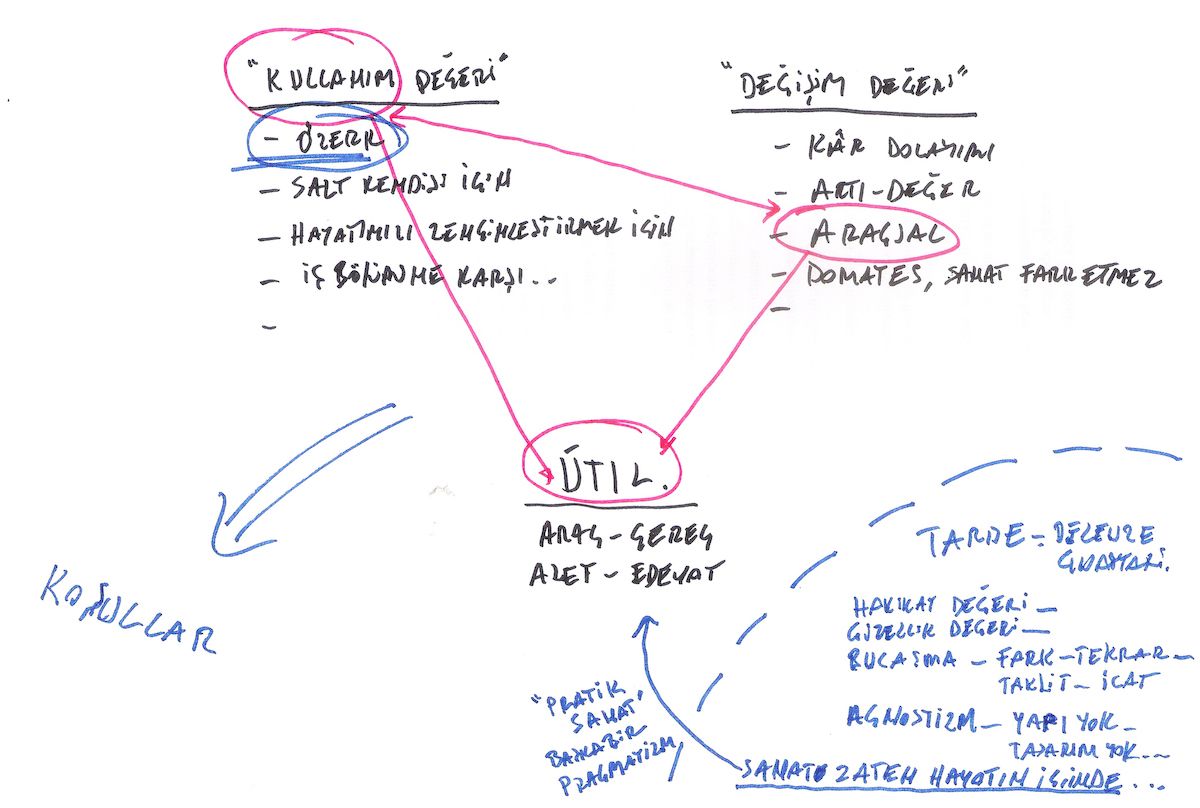 "KULLANIM DEĞERİ"
- ÖZERK
- SALT KENDİSİ İÇİN
- HAYATIMIZI ZENGİNLEŞTİRMEK İÇİN
- İŞ BÖLÜMÜNE KARŞI...
-
"DEĞİŞİM DEĞERİ"
- KÂR DOLAYIMI
- ARTI-DEĞER
- ARAÇSAL
- DOMATES, SANAT FARKETMEZ
-
ÚTIL.
ARAÇ-GEREÇ
ALET-EDEVAT
KOŞULLAR
TARDE - DELEUZE
GUATTARI.
HAKİKAT DEĞERİ -
GÜZELLİK DEĞERİ -
BULAŞMA - FARK-TEKRAR -
TAKLİT - İCAT
AGNOSTİZM - YAPI YOK -
TASARIM YOK...
"PRATİK
SANAT"
BAŞKA BİR
PRAGMATİZM
SANAT ZATEN HAYATIN İÇİNDE...